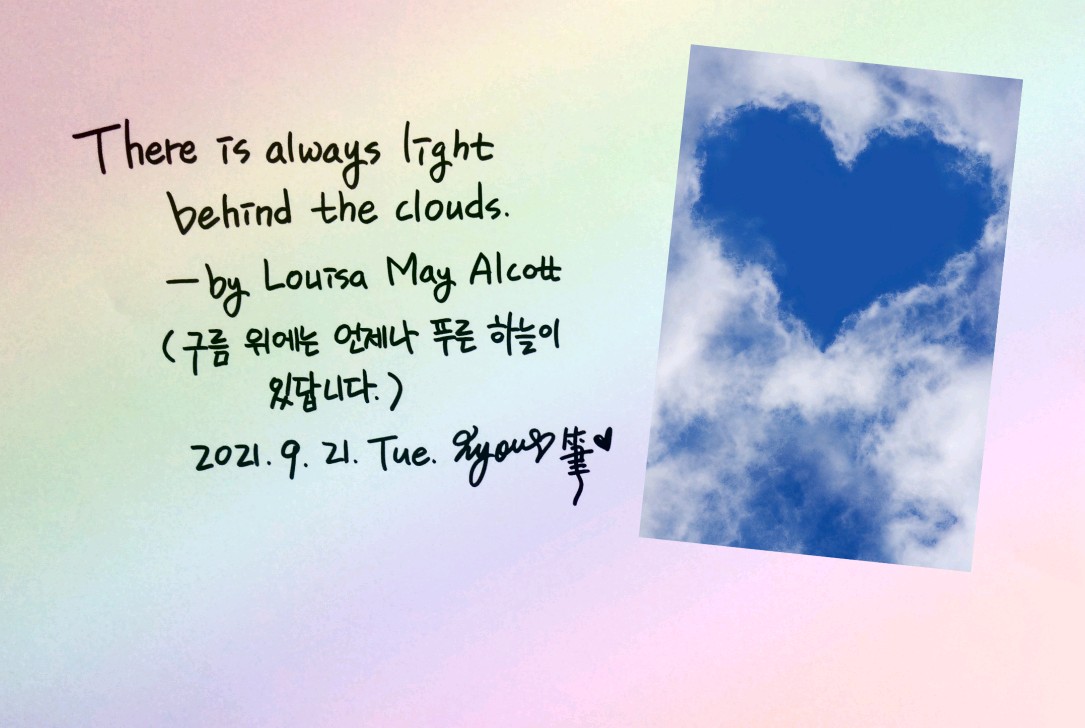 There is always light
behind the clouds.
- by Louisa May Alcott
(구름 위에는 언제나 푸른 하늘이
있답니다.)
2021. 9. 21. Tue. 筆